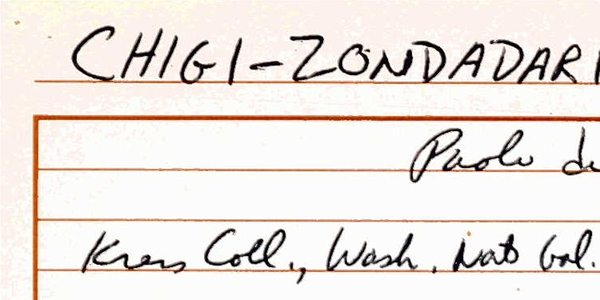 CHIGI-ZONDADARI
Paolo d
Kress Coll., Wash. Nat Gal.